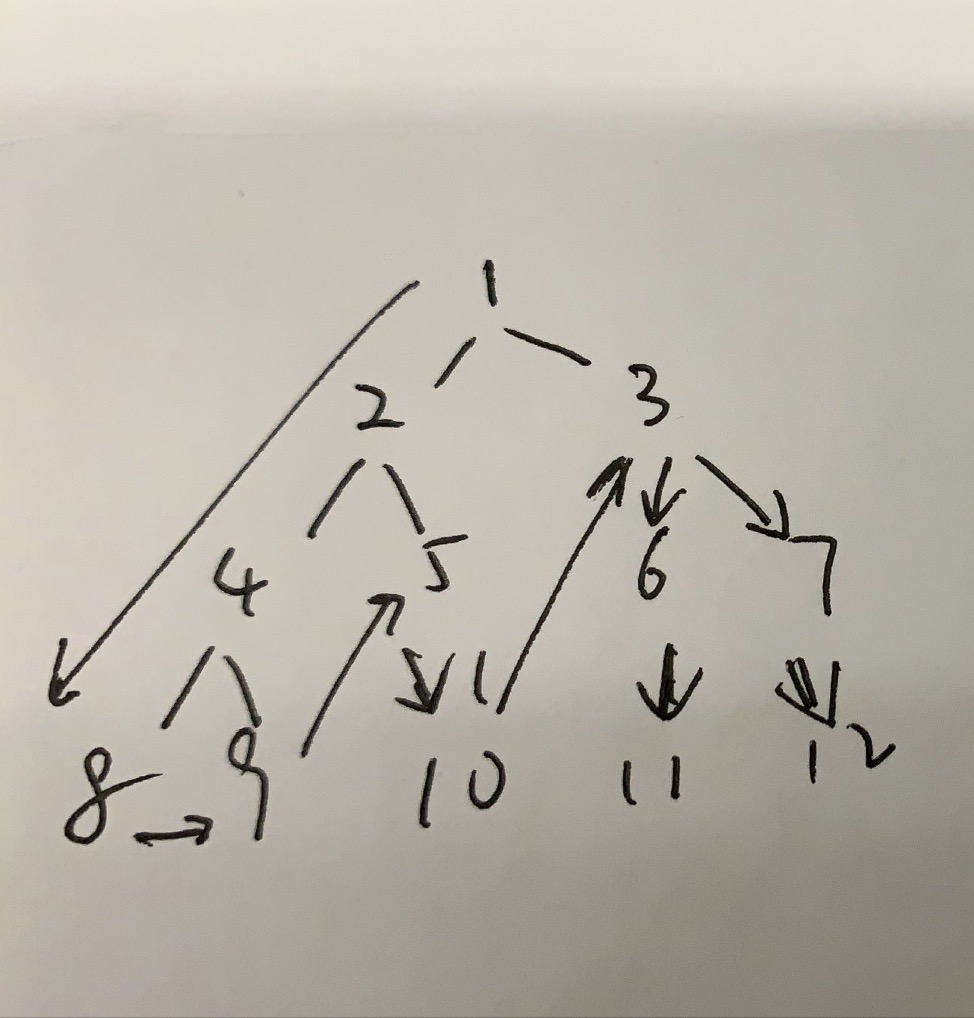 1
2 3
4 5 6 7
8 9 10 11 12